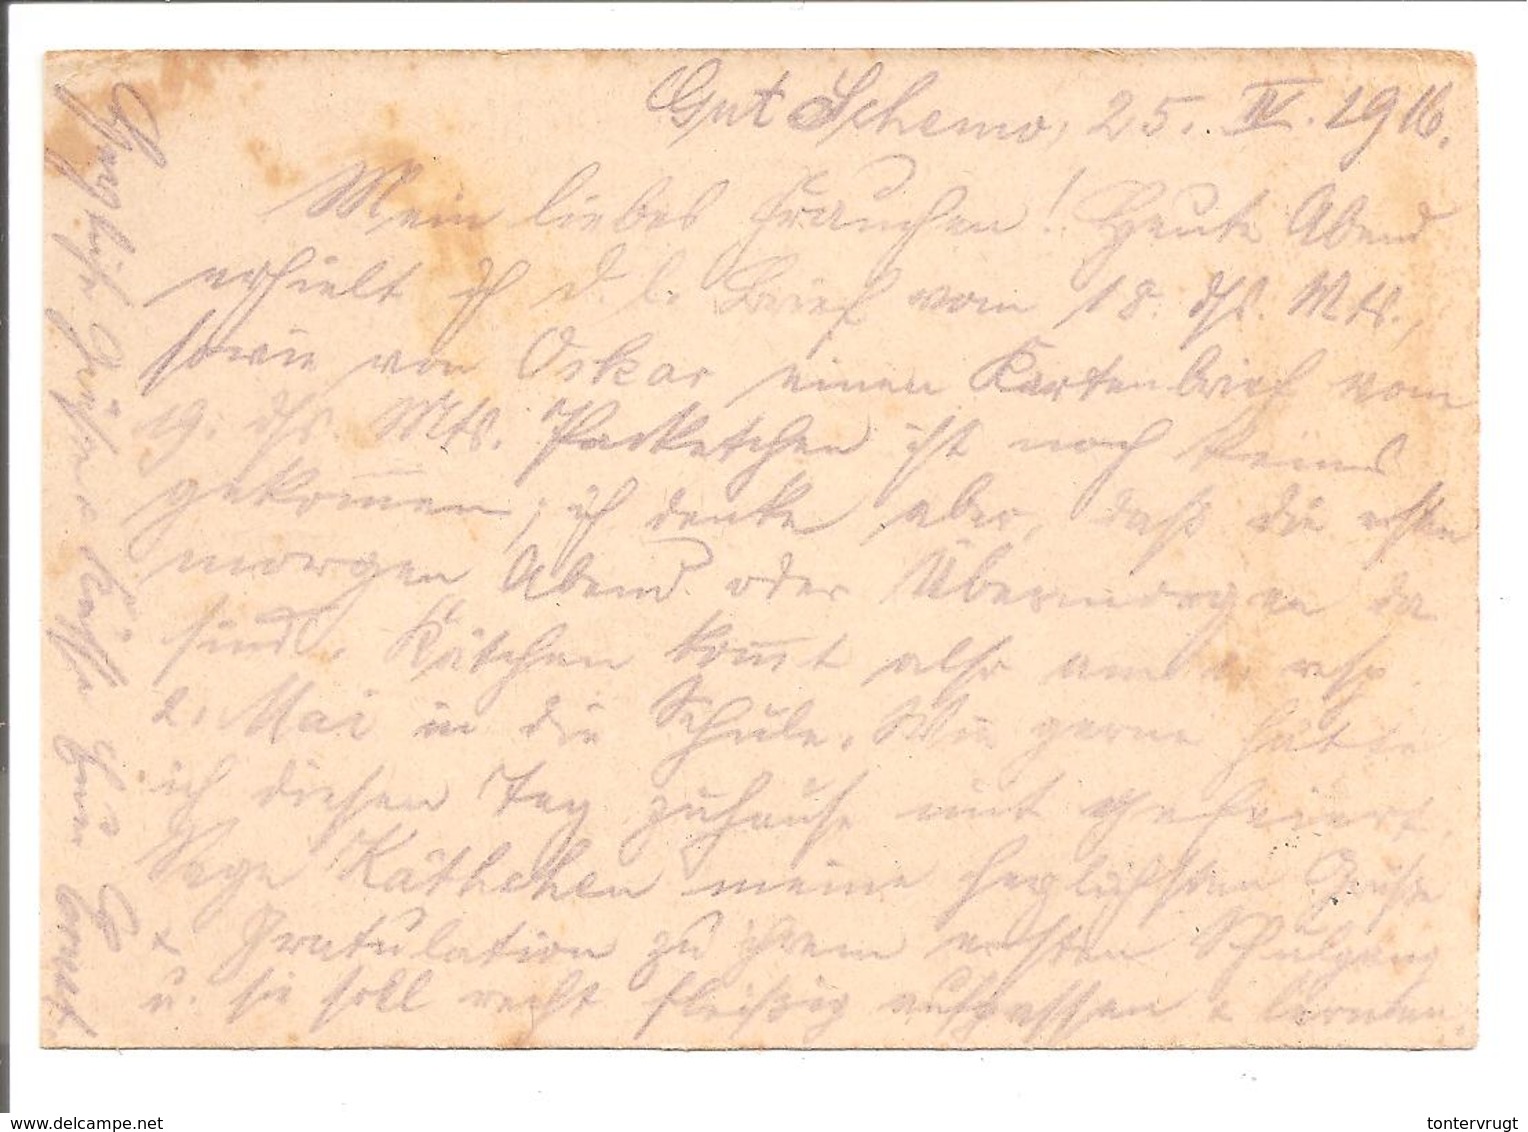 Gut Schemo, 25. IV. 1916.
Mein liebes Frauchen! Heute Abend
erhielt ich d. l. Brief vom 18. dss. Mts.,
sowie von Oskar einen Kartenbrief vom
19. dss. Mts. Packetchen ist noch keins
gekom̅en; ich denke aber, daß die ersten
morgen Abend oder Übermorgen da
sind. Kätchen kom̅t also am resp.
2. Mai in die Schule. Wie gerne hätte
ich diesen Tag zuhause mit gefeiert.
Sage Käthchen meine herzlichsten Grüße
& Gratulation zu ihrem ersten Schulgang
u. sie soll recht fleißig aufpassen & lernen.
Herzliche Grüße & Küsse Euer Ernst
tontervrugt
www.delcampe.net